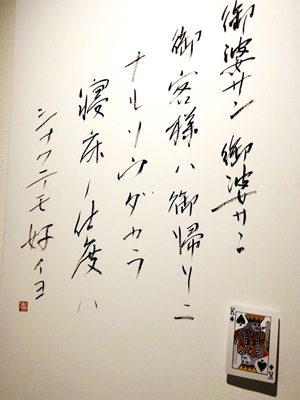 御婆サン 御婆サン
御客様ハ御帰リニ
ナルソウダカラ
寝床ノ仕度ハ
シナクテモ好イヨ
K